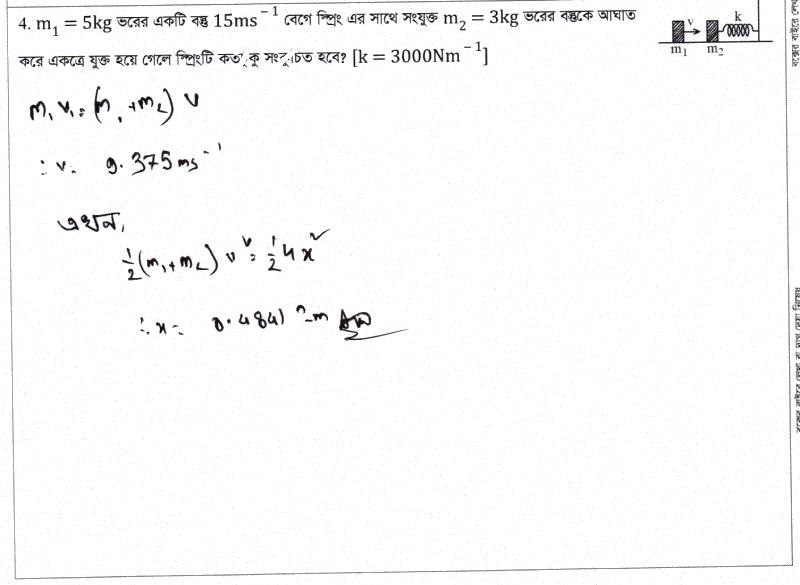 4. m₁ = 5kg ভরের একটি বস্তু 15ms⁻¹ বেগে স্প্রিং এর সাথে সংযুক্ত m₂ = 3kg ভরের বস্তুকে আঘাত
করে একত্রে যুক্ত হয়ে গেলে স্প্রিংটি কতটুকু সংকুচিত হবে? [k = 3000Nm⁻¹]
v k
m₁ m₂
m₁v₁ = (m₁ + m₂) v
∴ v = 9.375 ms⁻¹
এখন,
½(m₁ + m₂) v² = ½ k x²
∴ x = 0.4841 m Ans